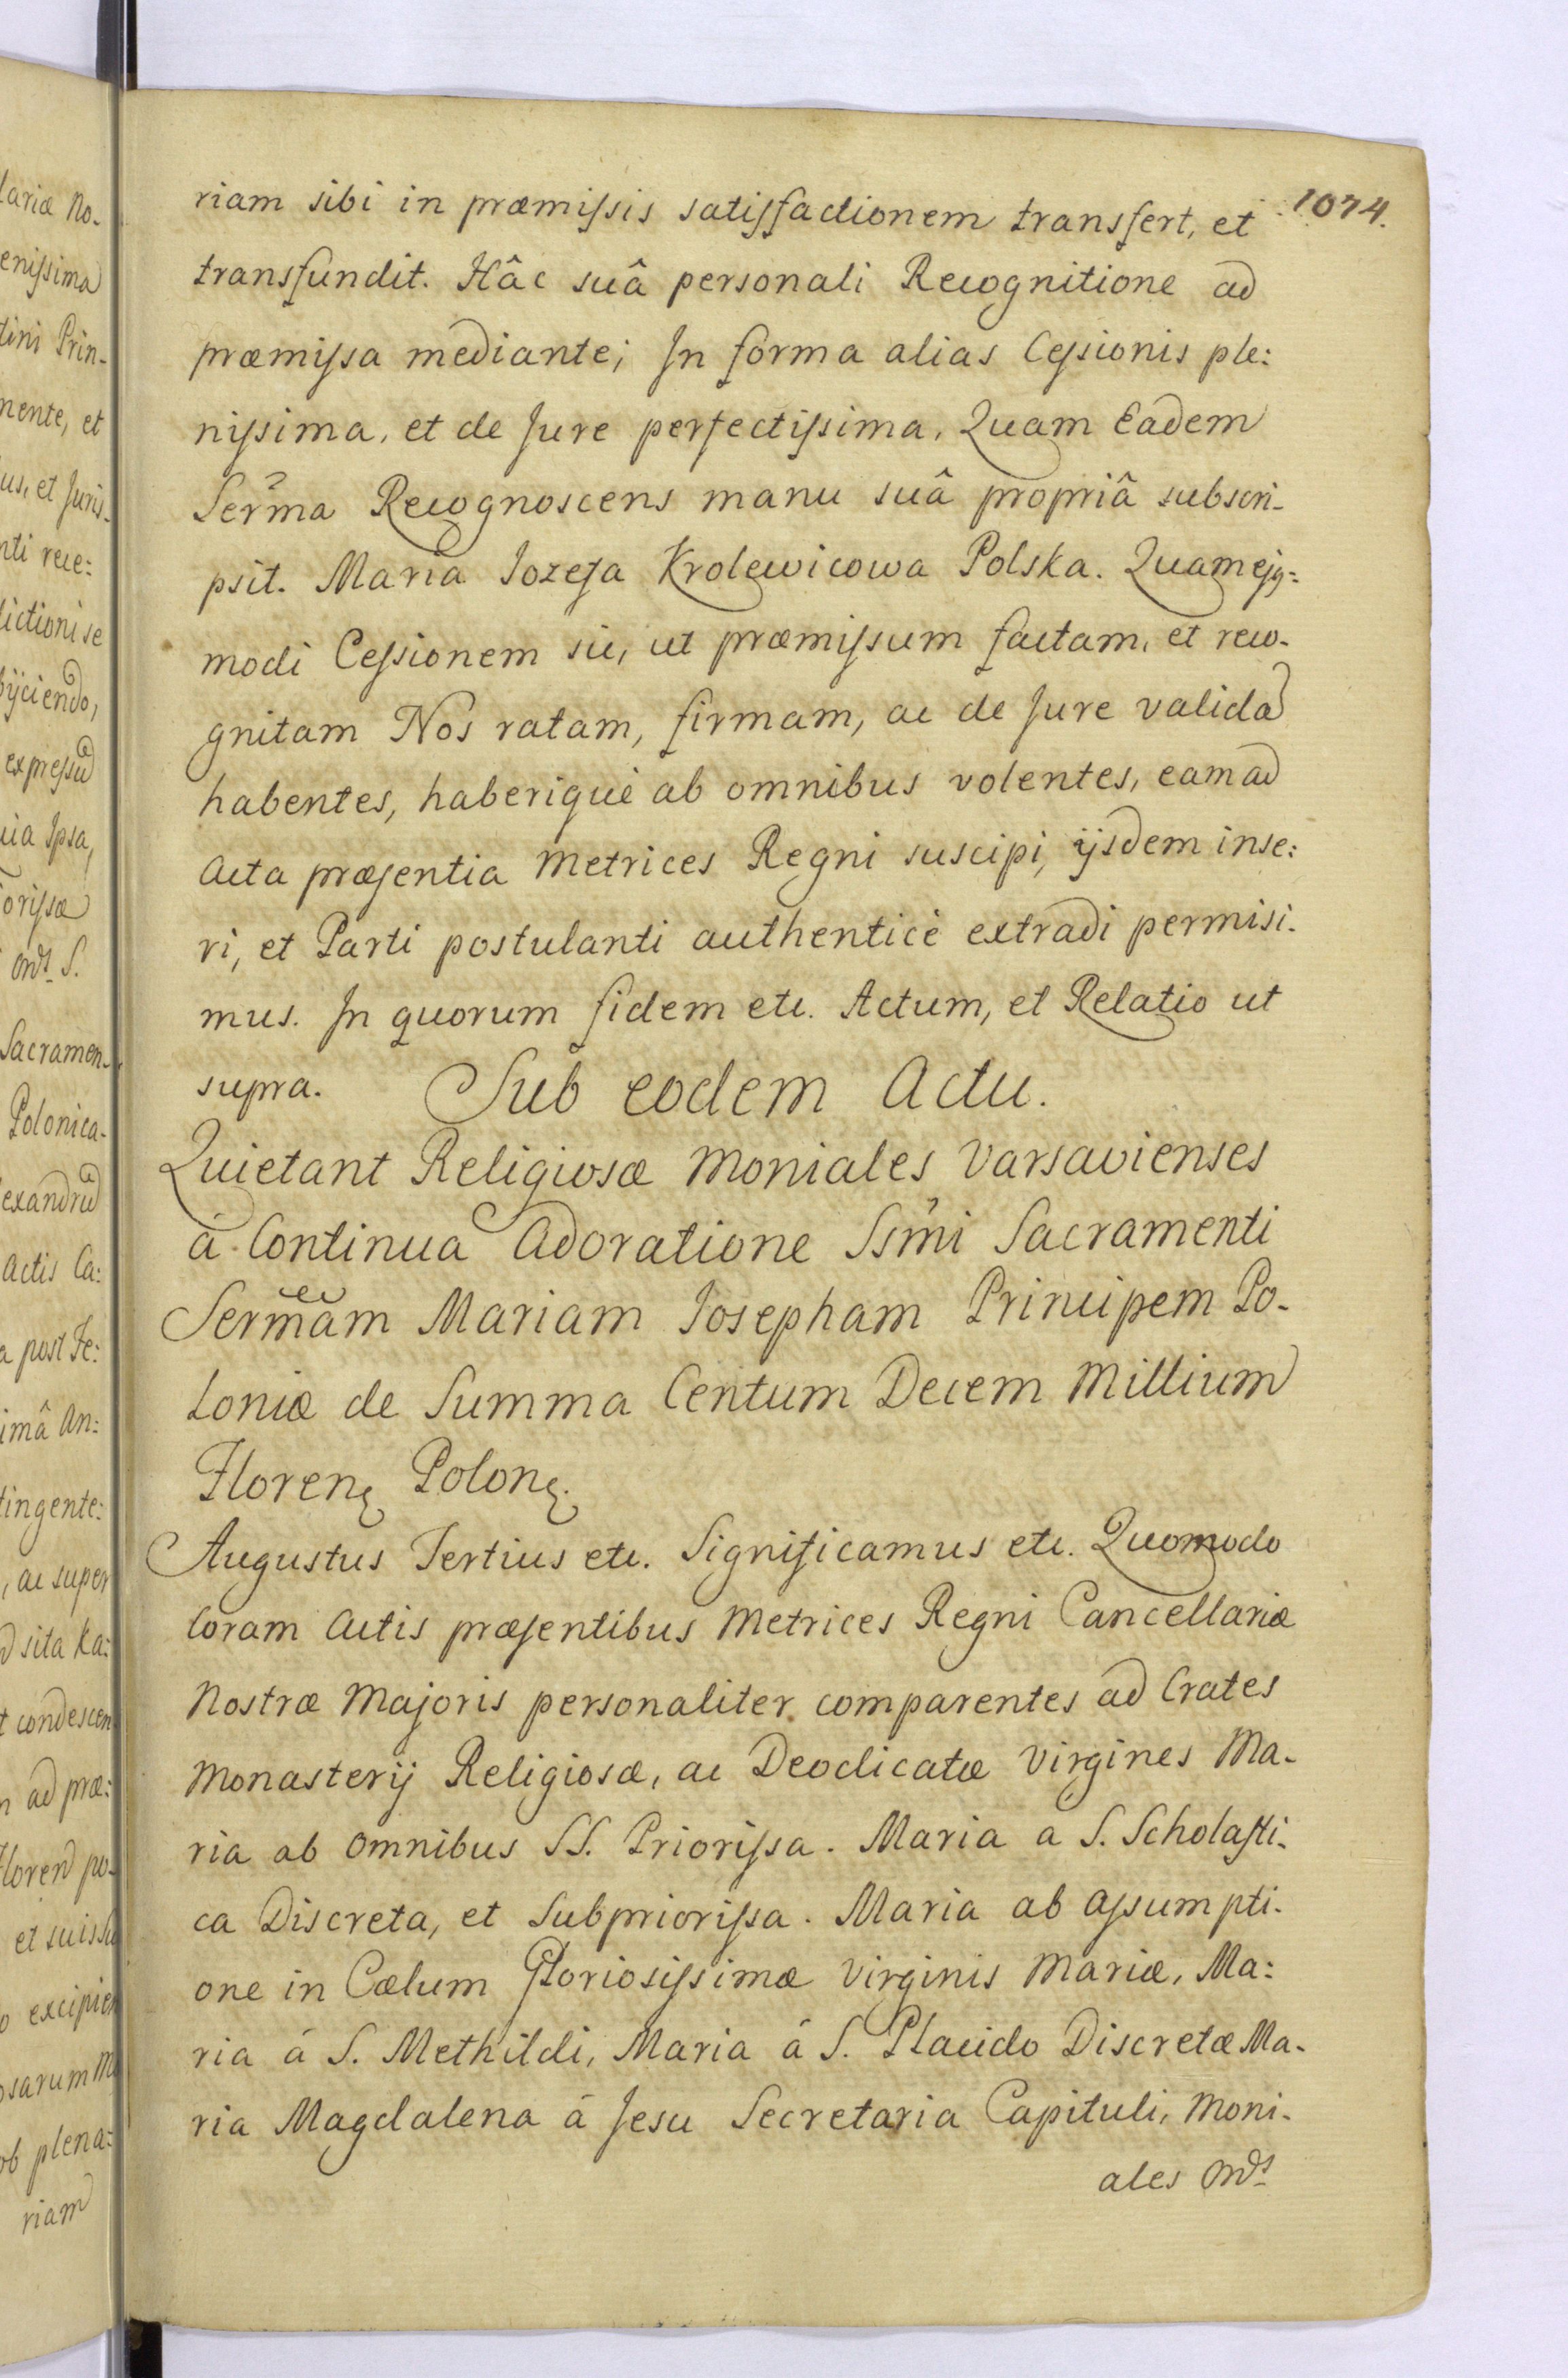 1074.
riam sibi in præmissis satisfactionem transfert, et
transfundit. Hâc suâ personali Recognitione ad
præmissa mediante; In forma alias Cessionis ple:
nissima, et de Jure perfectissima, Quam Eadem
Serma Recognoscens manu suâ propriâ subscri-
psit. Maria Iozefa Krolewicowa Polska. Quam ejg=
modi Cessionem sic, ut præmissum factam, et reco-
gnitam Nos ratam, firmam, ac de Jure valida
habentes, haberique ab omnibus volentes, eam ad
Acta præsentia Metrices Regni suscipi, ijsdem inse:
ri, et Parti postulanti authentice extradi permisi-
mus. In quorum fidem etc. Actum, et Relatio ut
supra. Sub eodem Actu.
Quietant Religiosæ Moniales Varsavienses
á Continua Adoratione Ssmi Sacramenti
Sermam Mariam Iosepham Principem Po-
loniæ de Summa Centum Decem Millium
Floren Polon.
Augustus Tertius etc. Significamus etc. Quomodo
Coram Actis præsentibus Metrices Regni Cancellariæ
Nostræ Majoris personaliter comparentes ad Crates
Monasterij Religiosæ, ac Deodicatæ Virgines Ma-
ria ab Omnibus SS. Priorissa. Maria a S. Scholasti-
ca Discreta, et Subpriorissa. Maria ab Assumpti-
one in Cælum Gloriosissimæ Virginis Mariæ, Ma:
ria á S. Methildi, Maria á S. Placido Discretæ Ma-
ria Magdalena á Jesu Secretaria Capituli, Moni-
ales Ords
lariæ No-
enissima
tini Prin-
nente, et
us, et Juris-
nti rece:
dictioni se
bijciendo,
expressu
uia Ipsa,
orissæ
Ords S.
Sacramen-
Polonica-
exandru
Actis Ca:
a post Fe:
imâ An:
tingente:
, ac super
d sita Ka:
t condescen
n ad præ:
Floren po-
et suis
o excipien
osarum M
ob plena:
riam